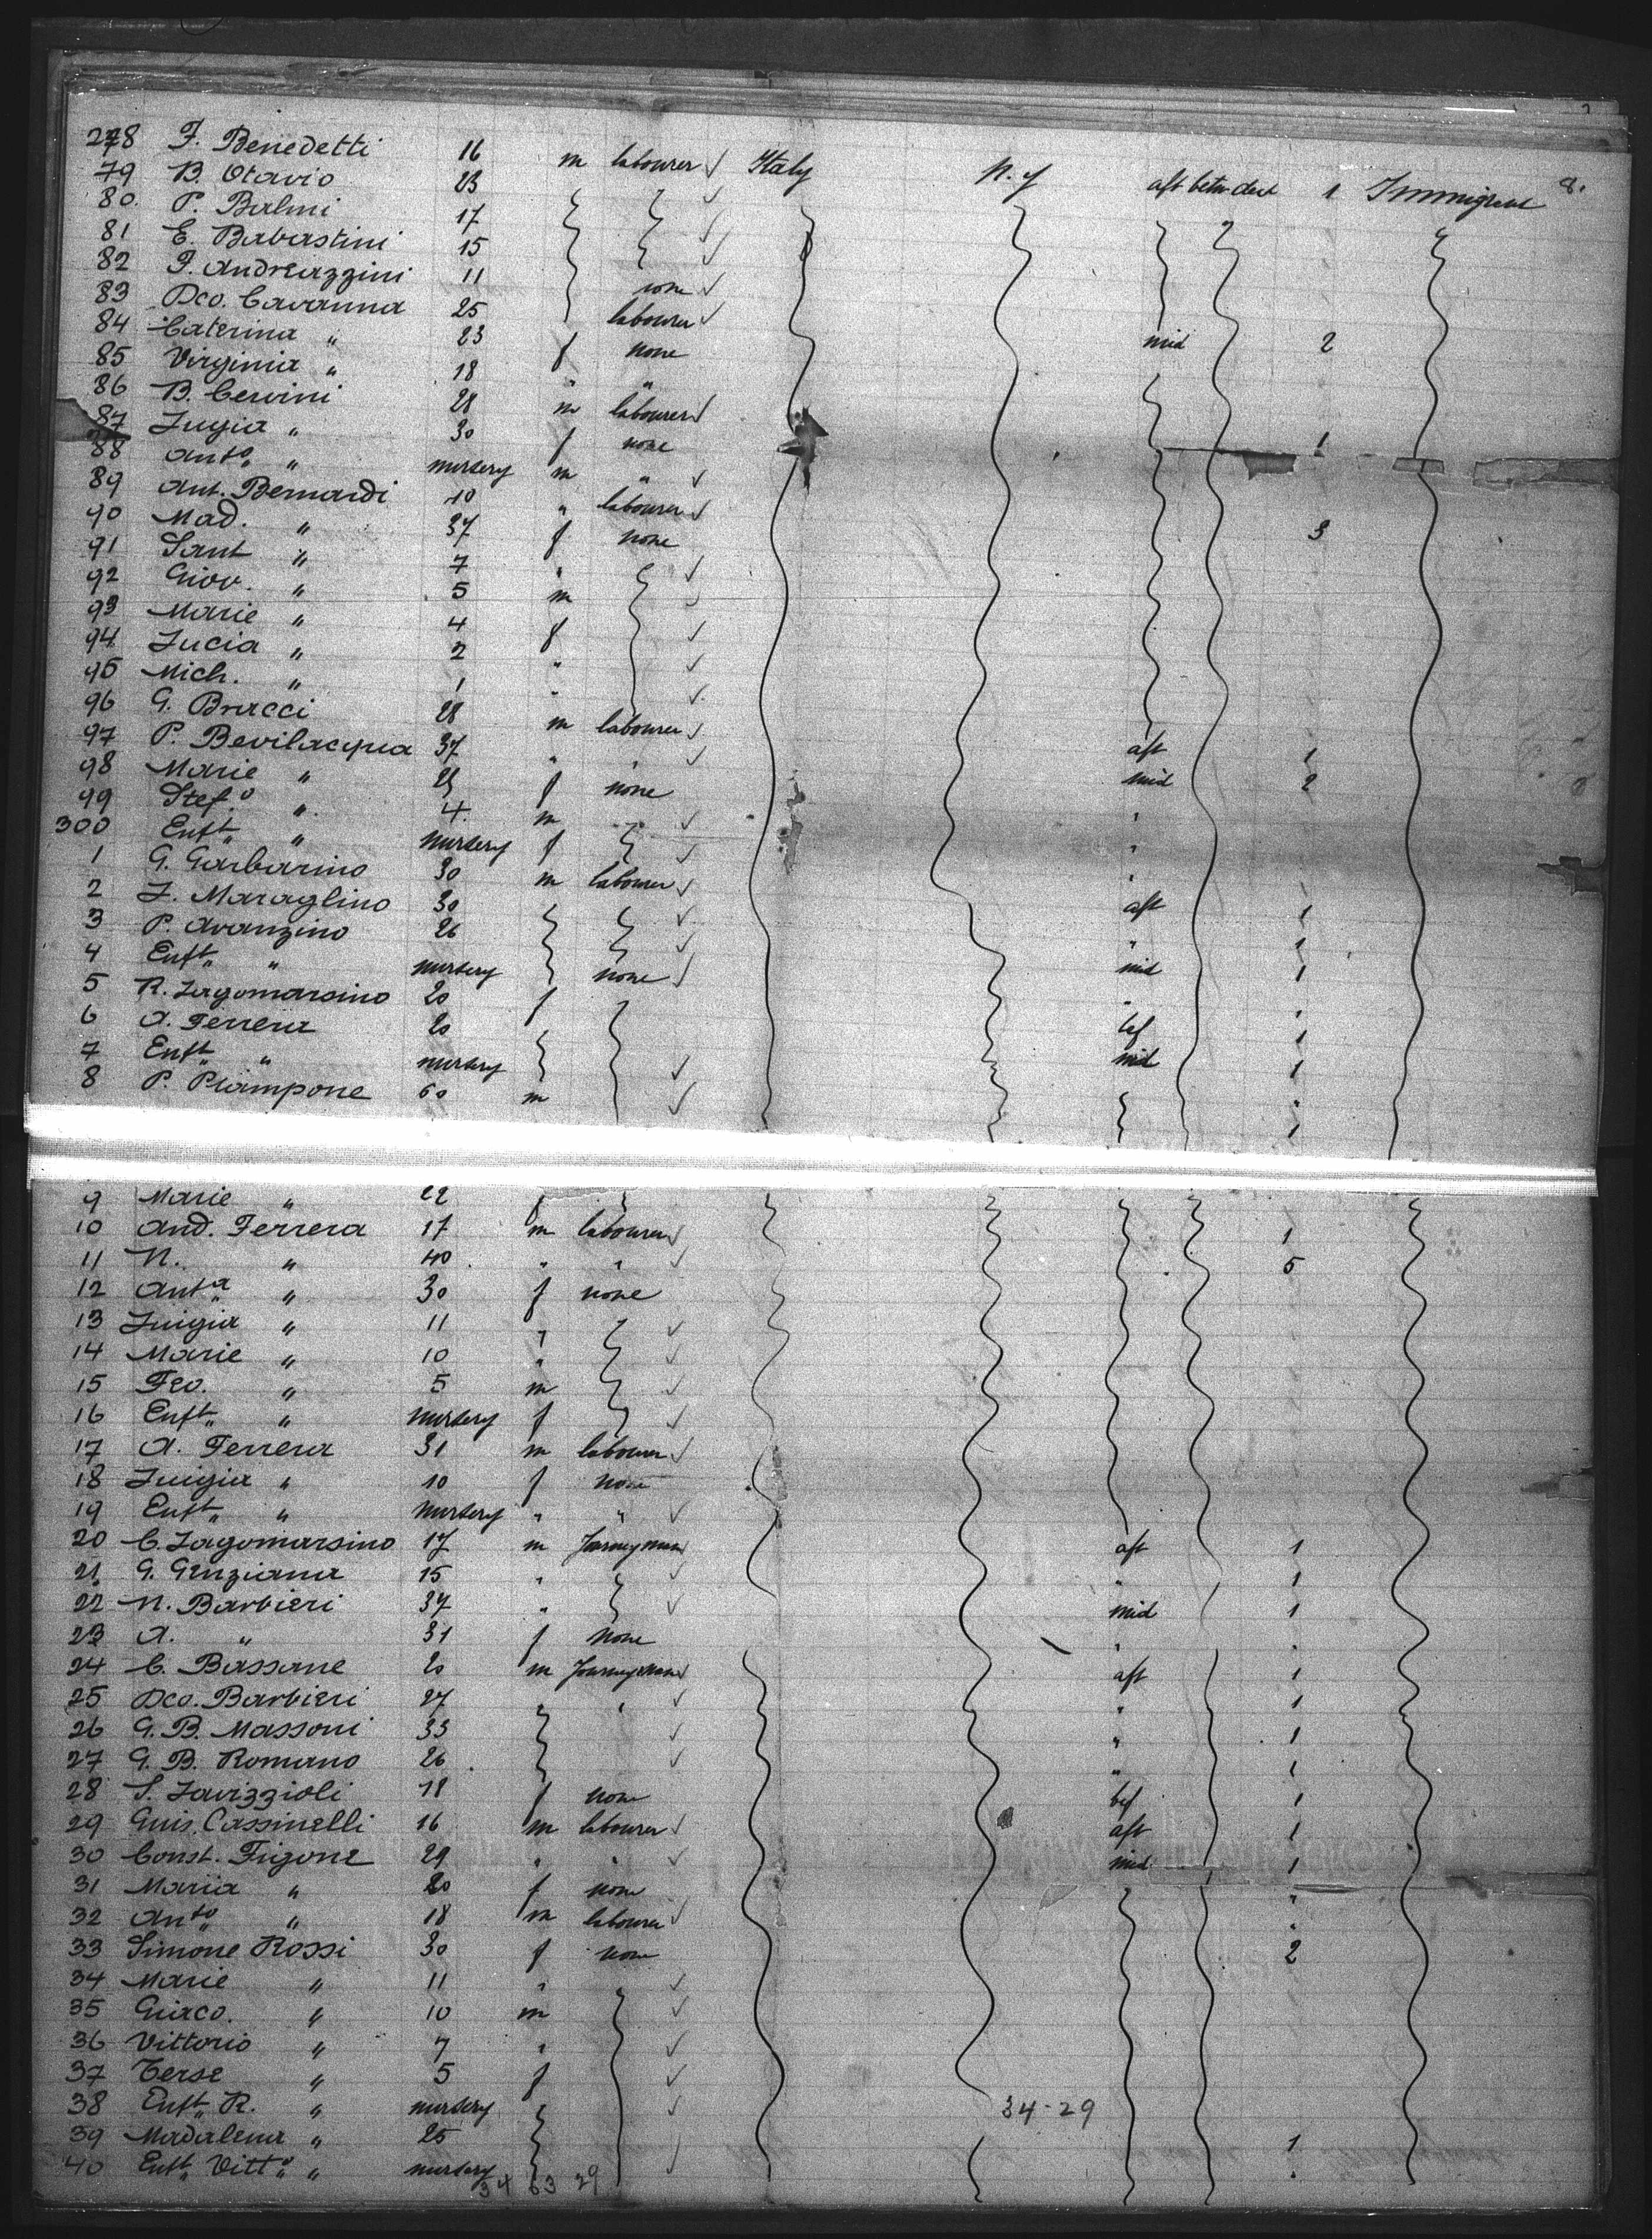 8.
278 F. Benedetti 16 m labourer ✓ Italy N. Y aft betw deck 1 Immigrant
79 B. Otavio 23 ✓
80. P. Balmi 17 ✓
81 E. Babastini 15 ✓
82 P. Andreazzini 11 none ✓
83 Dco. Cavanna 25 labourer ✓
84 Caterina " 23 f none mid 2
85 Virginia " 18 " "
86 B. Cervini 28 m labourer ✓
87 Lugia " 30 f none 1
88 Anto. " nursery m " ✓
89 Ant. Bernardi 40 " labourer ✓
90 Mad. " 37 f none 3
91 Sant " 7 " ✓
92 Giov. " 5 m ✓
93 Marie " 4 f ✓
94 Lucia " 2 " ✓
95 Mich. " 1 " ✓
96 G. Bracci 28 m labourer ✓
97 P. Bevilacqua 37 " " ✓ aft 1
98 Marie " f none mid 2
99 Stef.o " 4 m ✓ "
300 Enft. " nursery f ✓ "
1 G. Garbarino 30 m labourer ✓ "
2 L. Maraglino 30 ✓ aft 1
3 P. Avanzino 26 ✓ " 1
4 Enft. " nursery none ✓ mid 1
5 R. Lagomarsino 20 f " "
6 A. Ferrera 20 bef 1
7 Enft. " nursery ✓ mid 1
8 P. Piampone 60 m ✓ "
1
9 Marie " 22 f
10 And. Ferrera 17 m labourer ✓ 1
11 N. " 40 " " ✓ 5
12 Anta. " 30 f none
13 Luigia " 11 " ✓
14 Marie " 10 " ✓
15 Feo. " 5 m ✓
16 Enft. " nursery f ✓
17 A. Ferrera 31 m labourer ✓
18 Luigia " 10 f none
19 Enft. " nursery " " ✓
20 C. Lagomarsino 17 m Journeyman aft 1
21 G. Genziana 15 " ✓ " 1
22 N. Barbieri 37 " ✓ mid 1
23 A. " 31 f none " "
24 C. Bassane 20 m Journeyman aft 1
25 Dco. Barbieri 27 " " ✓ " 1
26 G. B. Massoni 33 ✓ " 1
27 G. B. Romano 26 ✓ " 1
28 S. Lavizzioli 18 f none bef 1
29 Guis. Cassinelli 16 m labourer ✓ aft 1
30 Const. Frigone 29 " " ✓ mid 1
31 Maria " 20 f none "
32 Anto. " 18 m labourer ✓ "
33 Simone Rossi 30 f none 2
34 Marie " 11 " ✓
35 Giaco. " 10 m ✓
36 Vittorio " 7 " ✓
37 Terse " 5 f ✓
38 Enft. R. " nursery ✓ 34-29
39 Madalena " 25 1
40 Enft. Vitt.a " nursery ✓ "
34 63 29